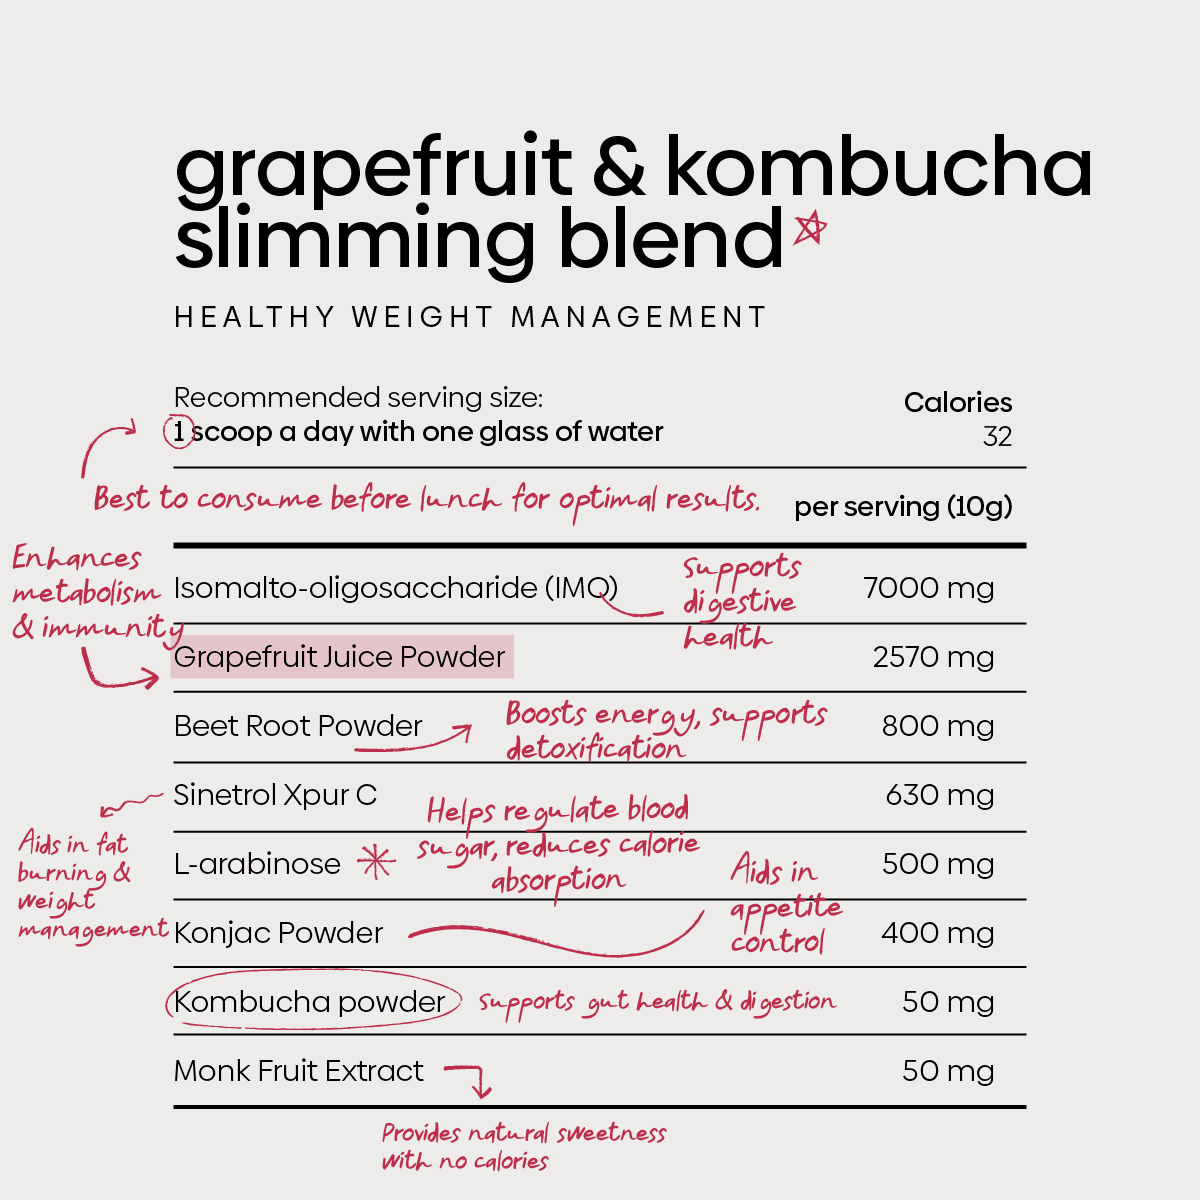 grapefruit & kombucha
slimming blend
HEALTHY WEIGHT MANAGEMENT
Recommended serving size:
1 scoop a day with one glass of water
Calories
32
Best to consume before lunch for optimal results.
per serving (10g)
Enhances
metabolism
& immunity
Isomalto-oligosaccharide (IMO)
Supports
digestive
health
7000 mg
Grapefruit Juice Powder
2570 mg
Beet Root Powder
Boosts energy, supports
detoxification
800 mg
Sinetrol Xpur C
630 mg
Aids in fat
burning &
weight
management
Helps regulate blood
sugar, reduces calorie
absorption
L-arabinose
500 mg
Aids in
appetite
control
Konjac Powder
400 mg
Kombucha powder
Supports gut health & digestion
50 mg
Monk Fruit Extract
50 mg
Provides natural sweetness
with no calories